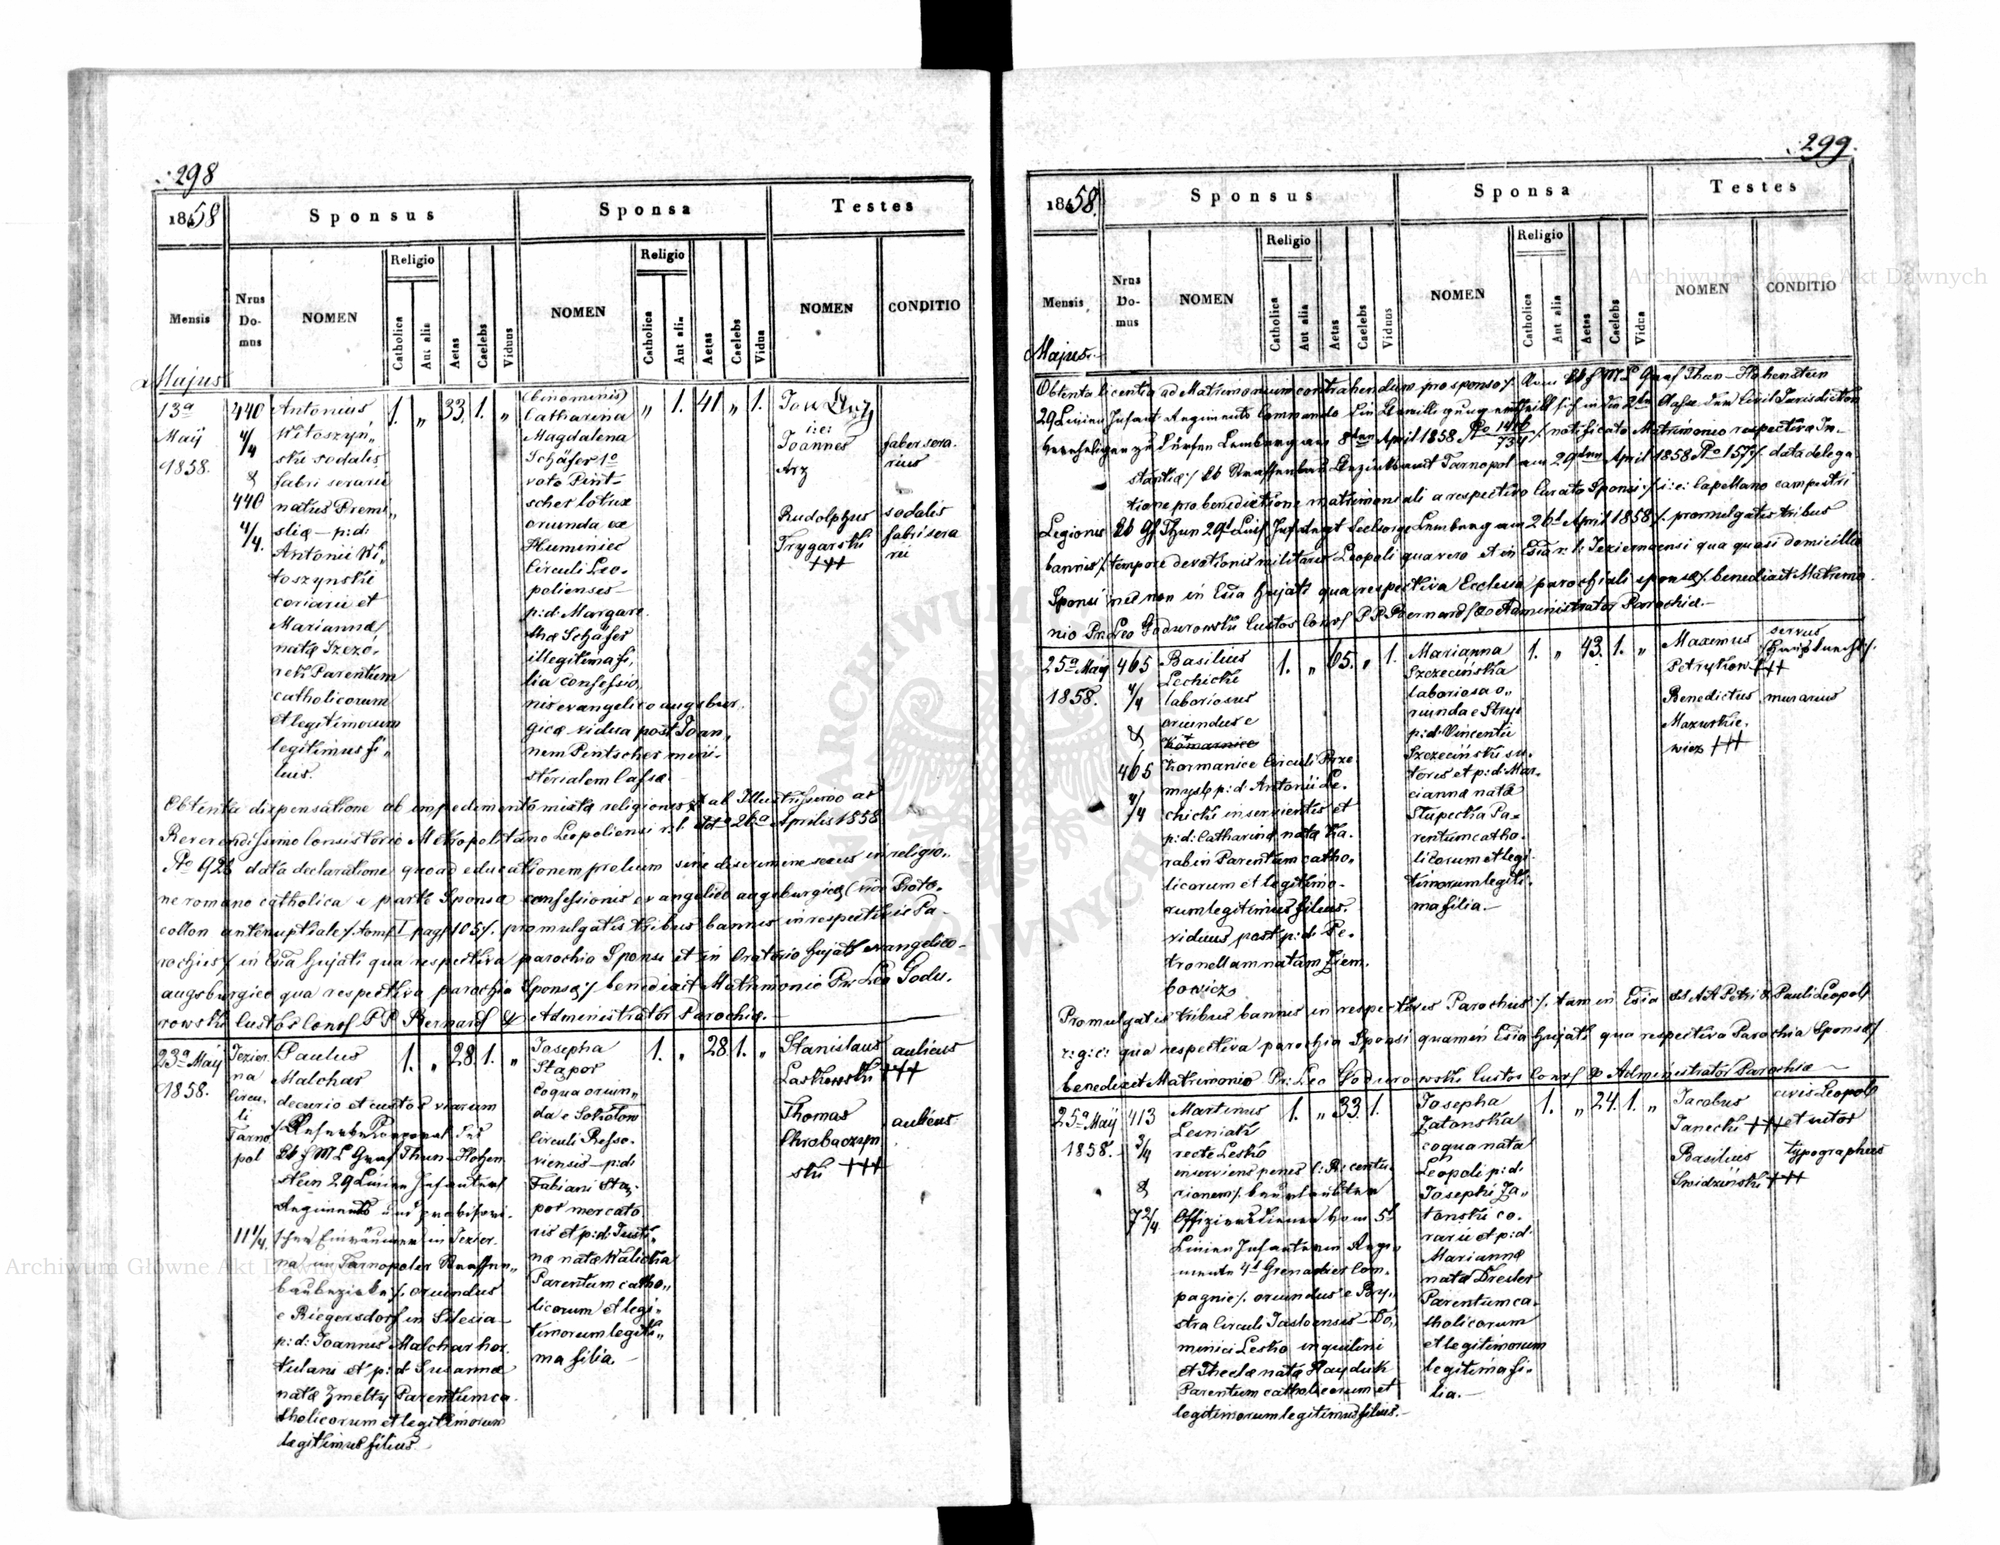 298
1858
Sponsus
Sponsa
Testes
Mensis
Nrus Do- mus
NOMEN
Religio
Catholica
Aut alia
Aetas
Caelebs
Viduus
NOMEN
Religio
Catholica
Aut alia
Aetas
Caelebs
Vidua
NOMEN
CONDITIO
Majus
13a
May
1858.
440
4/4
&
440
4/4.
Antonius
Witoszyń„
ski sodalis
fabri serarii
natus Premi„
sliæ – p: d:
Antonii Wi„
toszynski
coriarii et
Mariannæ
natæ Szezó„
rek Parentum
catholicorum
et legitimorum
legitimus fi„
lius.
1. „ 33. 1. „
(binominis)
Catharina
Magdalena
Schäfer 1o
voto Pint-
scher lotrix
oriunda ex
Huminiec
Circuli Leo-
poliensis
p: d: Margare
thæ Schäfer
illegitima fi„
lia confessio„
nis evangelico augsbur„
gicæ vidua post Joan„
nem Pintscher mini-
sterialem Cassæ
„ 1. 41 „ 1.
i: e:
Joannes
Arz
faber sera-
rius
Rudolphus
Trygarski
+++
sodalis
fabri sera
rii
Obtenta dispensatione ab impedimento mixtæ religionis ab Illustrissimo ac
Reverendissimo Consistorio Metropolitano Leopoliensi r: l: ddto 26a Aprilis 1858
No 926 data declaratione quoad educationem prolium sine discrimine sexus in religio„
ne romano catholica e parte Sponsæ confessionis evangelico augsburgicæ (vide Proto„
collon antenuptiale /. tom I pag 105 /. promulgatis tribus bannis in respectivis Pa-
rochiis /. in Ecclâ hujati qua respectiva parochia Sponsi et in Oratorio hujati evangelico-
augsburgico qua respectiva parochia Sponsæ /. benedixit Matrimonio Pr: Leo Godu„
rowski Custos Conv P P Bernard & Administrator Parochiæ.–
23a May
1858.
Jezier„
na
Circu„
li
Tarno
pol
11 1/4
Paulus
Malchar
decurio et custos viarum
k k F M L Graf Thun-Hohen
stein 29 Linien Infanterie
Regiments und provisori-
scher Einräumer in Jezier„
na im Tarnopoler Strassen„
baubezirke /. oriundus
e Riegersdorf in Silesia
p: d: Joannis Malchar hor„
tulani et p: d: Susannæ
natæ Zmelty Parentum ca„
tholicorum et legitimorum
legitimus filius
1. „ 28. 1. „
Josepha
Stapor
coqua oriun„
da e Sokołow
Circuli Resso-
viensis – p: d:
Fabiani Sta„
por mercato
ris et p: d: Justi„
næ natæ Walicka
Parentum catho„
licorum et legi„
timorum legiti„
ma filia. –
1. „ 28. 1. „
Stanislaus
Laskowski +++
aulicus
Thomas
Chrobaczyn
ski +++
aulicus
299.
1858.
Sponsus
Sponsa
Testes
Mensis
Nrus Do- mus
NOMEN
Religio
Catholica
Aut alia
Aetas
Caelebs
Viduus
NOMEN
Religio
Catholica
Aut alia
Aetas
Caelebs
Vidua
NOMEN
CONDITIO
Majus.
Obtenta licentia ad Matrimonium contrahendum pro sponso /. Vom k k F M L Graf Thun-Hohenstein
29 Linien Infant Regiments Commando die Bewilligung ertheilt sich in der 2ten Classe der Civil Jurisdiction
verehelichen zu dürfen Lemberg am 8ten April 1858 No /. notificato Matrimonio respectiva In-
stantiæ /. kk Strassenbau Bezirksamt Tarnopol am 29ten April 1858 No 157 /. data delega
tione pro benedictione matrimoniali a respectivo Curato Sponsi /. i: e: Capellano campestri
Legionis kk Gf Thun 29t Lin Inft Regt Seelsorge Lemberg am 26t April 1858 /. promulgatis tribus
bannis /. tempore devotionis militaris Leopoli qua vero et in Ecclâ r: l: Jeziernaensi qua quasi domicilio
Sponsi nec non in Ecclâ hujati qua respectiva Ecclesia parochiali sponsæ /. benedixit Matrimo
nio Pr: Leo Godurowski Custos Conv P P Bernard & Administrator Parochiæ.–
25a May
1858.
465
4/4
&
465
4/4
Basilius
Lechicki
laboriosus
oriundus e
Komarnice
Kormanice Circuli Prze
mysl p: d: Antonii Le„
chicki inservientis et
p: d: Catharinæ natæ Ka„
rabin Parentum catho„
licorum et legitimo-
rum legitimus filius.
viduus post p: d: Pe„
tronellam natam Ziem„
bowicz
1. „ 65. „ 1.
Marianna
Szczecińska
laboriosa o„
riunda e Stryi
p: d: Vincentii
Szczeciński su„
toris et p: d: Mar„
ciannæ natæ
Słupecka Pa-
rentum catho„
licorum et legi„
timorum legiti„
ma filia. –
1. „ 43. 1. „
Maximus
Petrykow +++
servus
(Hausknecht/.
Benedictus
Mazurkie„
wicz +++
murarius
Promulgatis tribus bannis in respectivis Parochiis /. tam in Ecclâ SS AA Petri & Pauli Leopoli
r: g: c: qua respectiva parochia Sponsi quam in Ecclâ hujati qua respectiva Parochia Sponsæ/
benedixit Matrimonio Pr: Leo Godurowski Custos Conv & Administrator Parochiæ –
25a May
1858. –
413
3/4
&
7 2/4
Martinus
Lesniak
recte Lesko
inserviens penes C: R: centu„
rionem /. beurlaubter
Offiziersdiener vom 5t
Linien Infanterie Regi„
mente 4t Grenadier Com„
pagnie /. oriundus e By„
stra Circuli Jasloensis – Do„
minici Lesko inquilini
et Theclæ natæ Hayduk
Parentum catholicorum et
legitimorum legitimus filius. –
1. „ 33. 1.
Josepha
Zatońska
coqua nata
Leopoli p: d:
Josephi Za„
tonski co„
rarii et p: d:
Mariannæ
natæ Drexler
Parentum ca„
tholicorum
et legitimorum
legitima fi„
lia. –
1. „ 24. 1. „
Jacobus
Janecki +++
civis Leopol
et sutor
Basilius
Swidziński +++
typographus
Archiwum Główne Akt Dawnych
Archiwum Główne Akt Dawnych
ARCHIWUM
DAWNYCH